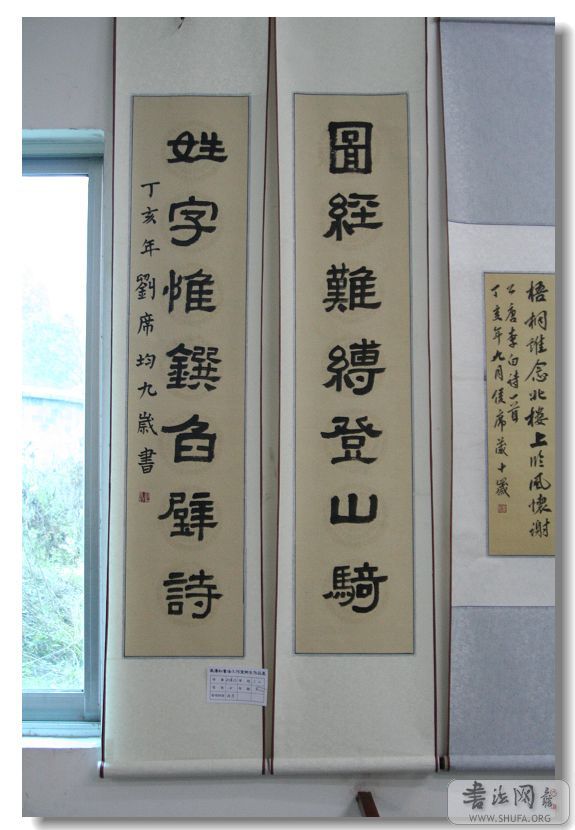 梧桐誰念北樓上臨風懷謝
公唐李白诗一首
丁亥年九月侯席葳十歲
圖經難縛登山騎
姓字惟鐫白壁詩
丁亥年劉席均九歲書
書法网
WWW.SHUFA.ORG